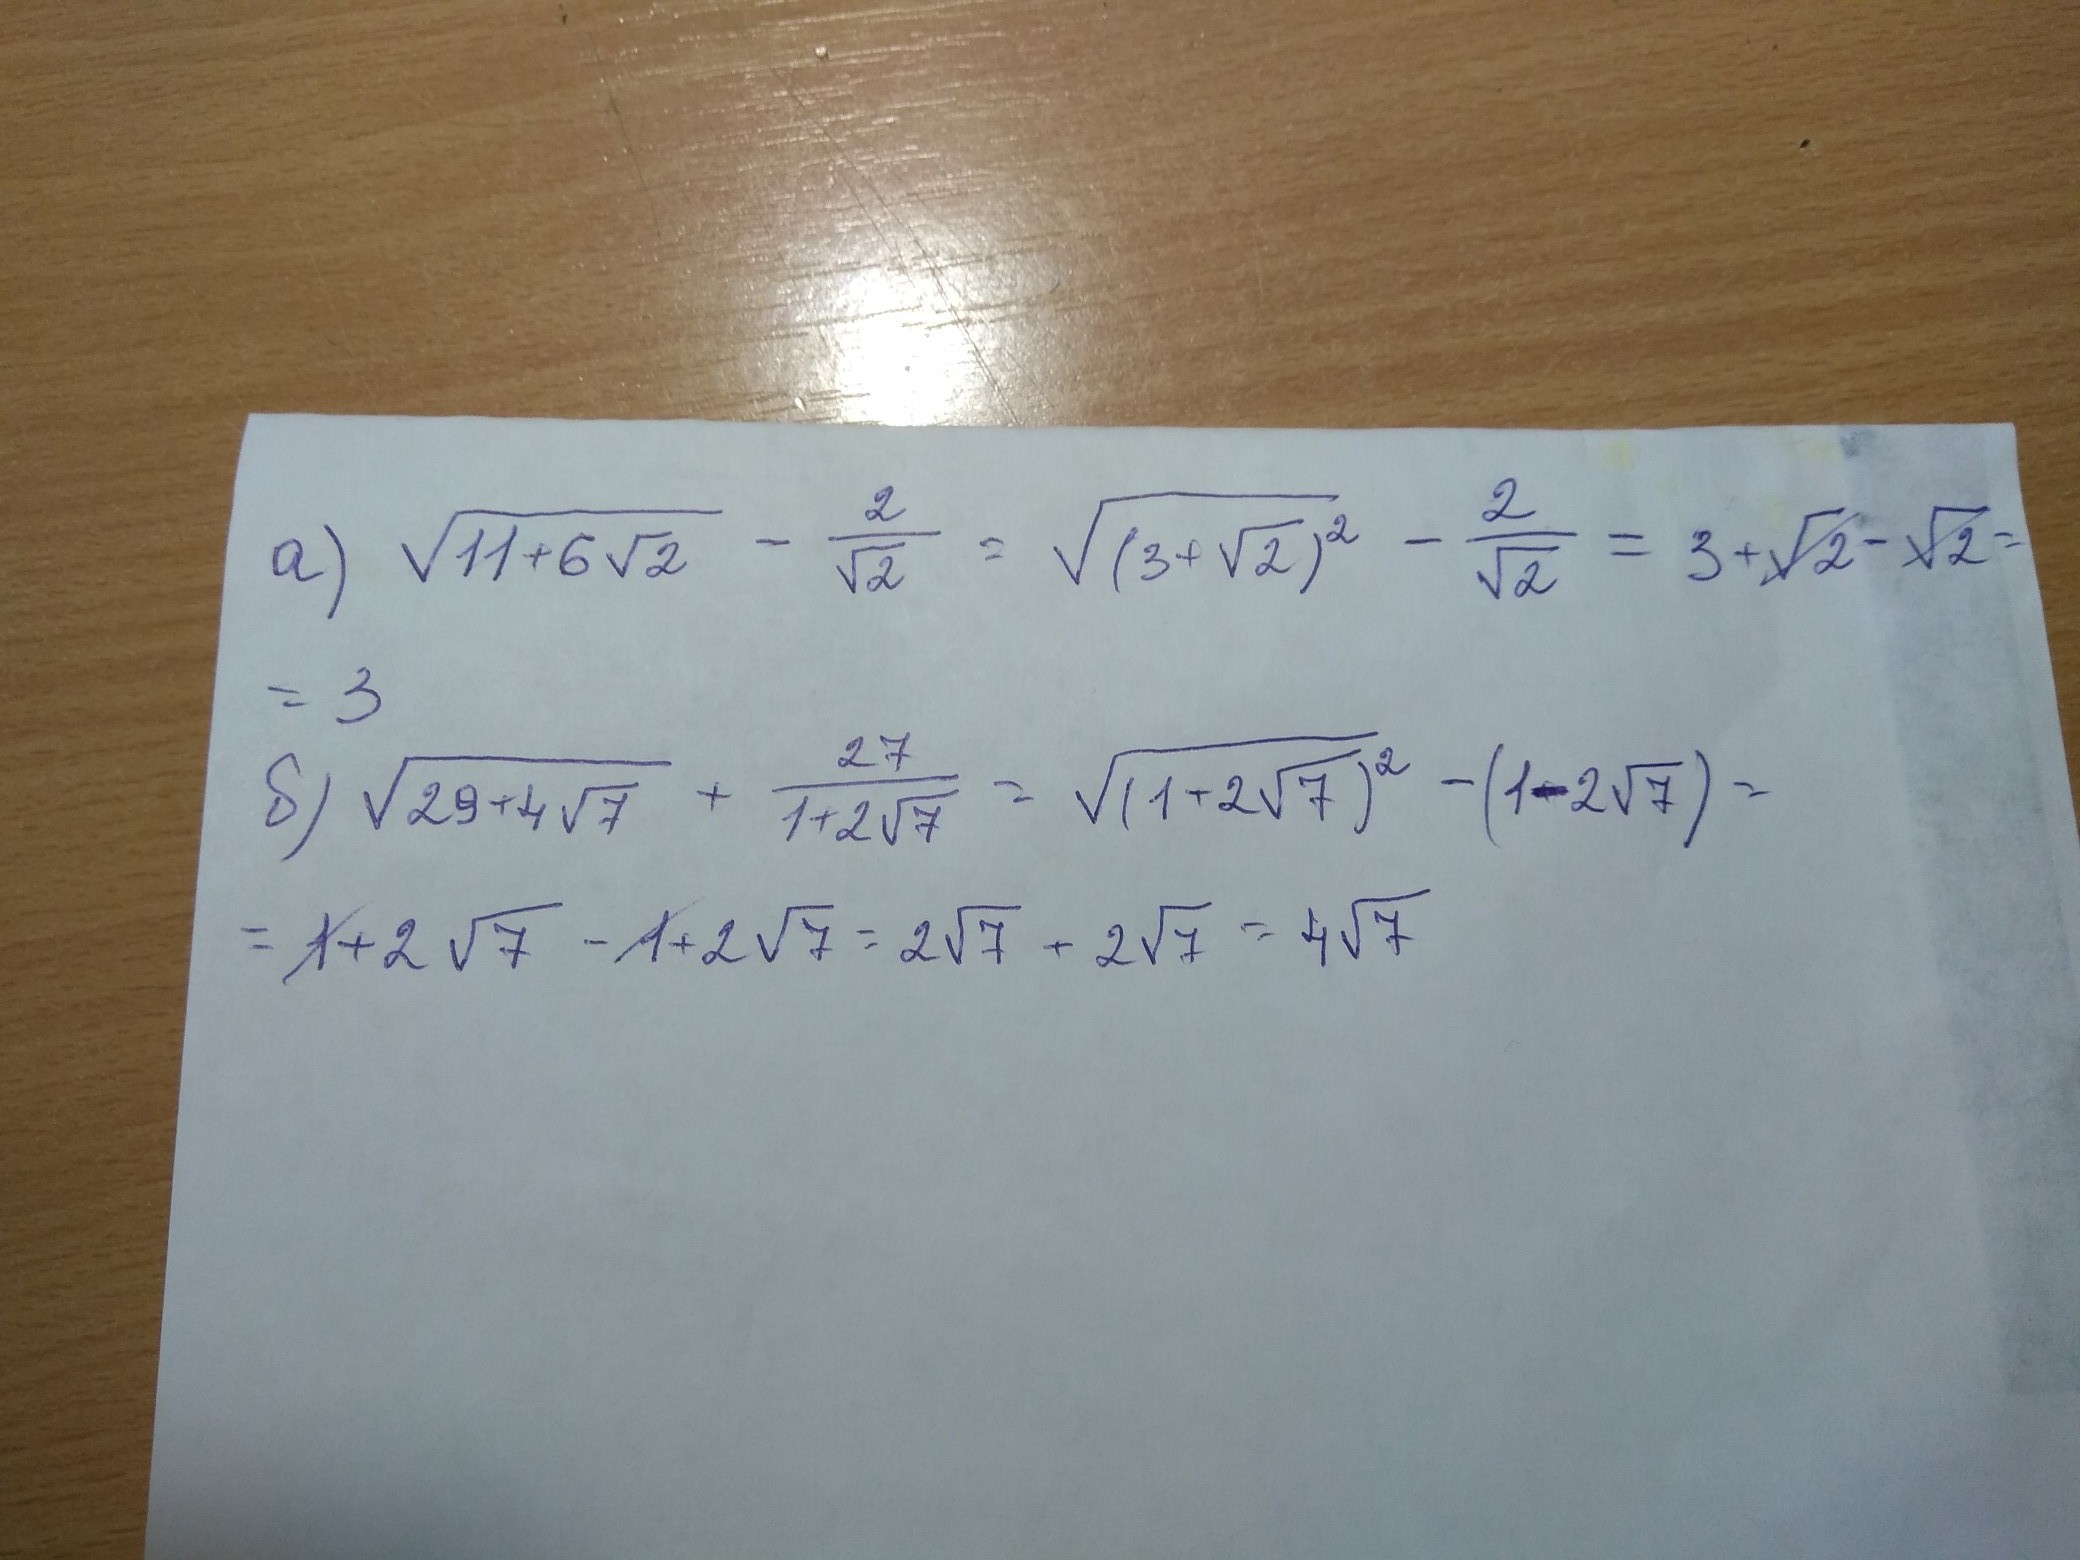 а) √(11+6√2) - 2/√2 = √((3+√2)²) - 2/√2 = 3+√2-√2=
= 3
б) √(29+4√7) + 27/(1+2√7) = √((1+2√7)²) -(1-2√7)=
= 1+2√7 -1+2√7=2√7+2√7=4√7